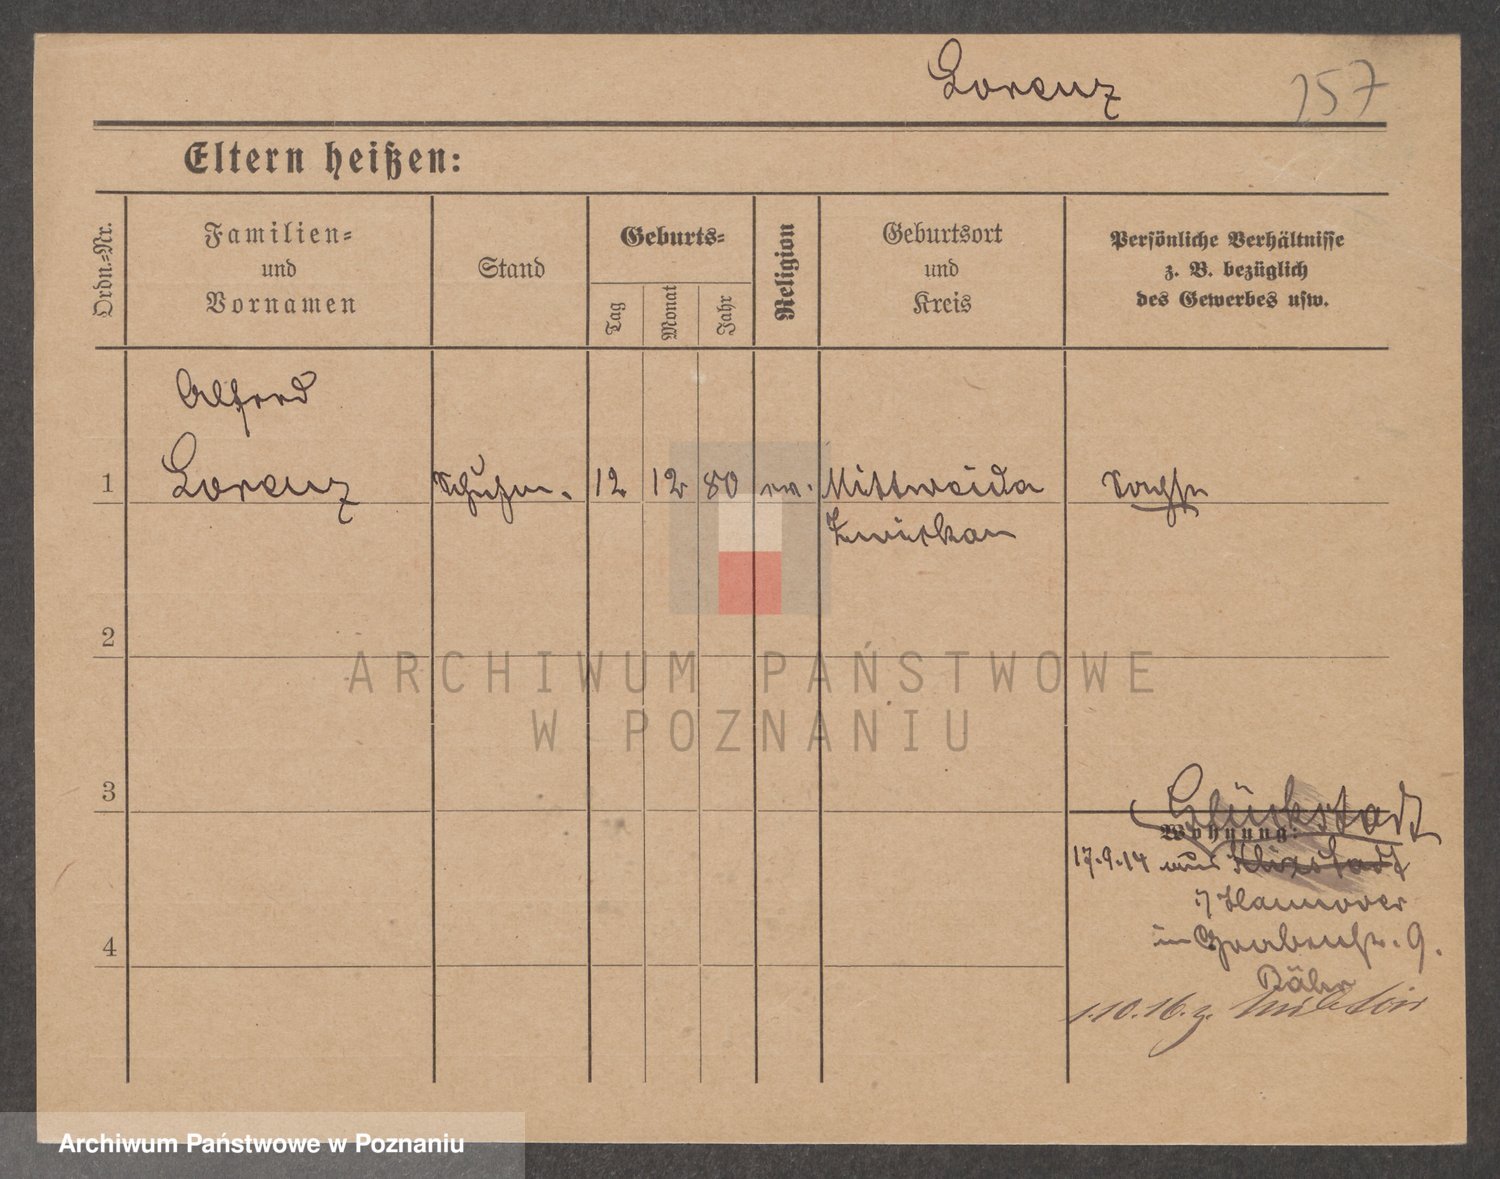 Lorenz
257
Eltern heißen:
Ordn.-Nr.
Familien-
und
Vornamen
Stand
Geburts-
Tag
Monat
Jahr
Religion
Geburtsort
und
Kreis
Persönliche Verhältnisse
z. B. bezüglich
des Gewerbes usw.
Alfred
1 Lorenz 12 12 80 ev. Mittweida
Zwickau
2
ARCHIWUM PAŃSTWOWE
W POZNANIU
3
Glückstadt
Wohnung:
17.9.14 aus
i/ Hannover
in Grabenstr. 9.
4
1.10.16. z. Militär
Archiwum Państwowe w Poznaniu